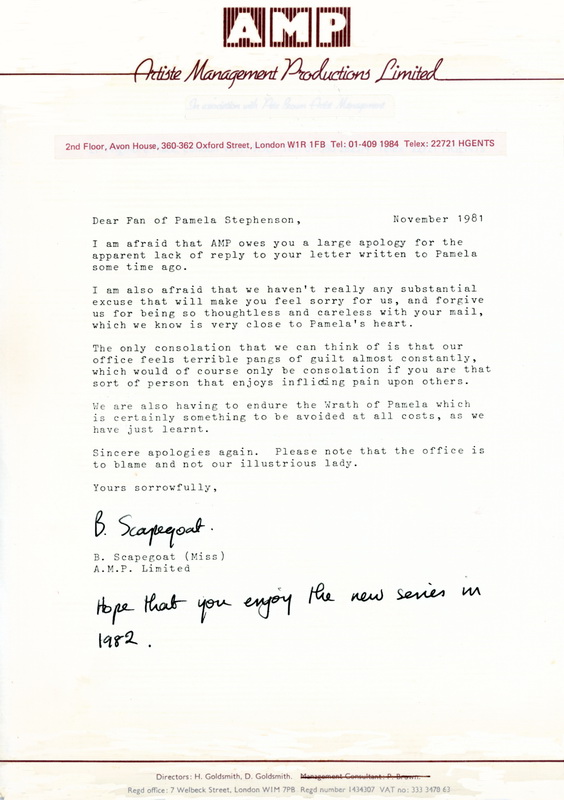 AMP
Artiste Management Productions Limited
2nd Floor, Avon House, 360-362 Oxford Street, London W1R 1FB Tel: 01-409 1984 Telex: 22721 HGENTS
Dear Fan of Pamela Stephenson, November 1981
I am afraid that AMP owes you a large apology for the
apparent lack of reply to your letter written to Pamela
some time ago.
I am also afraid that we haven't really any substantial
excuse that will make you feel sorry for us, and forgive
us for being so thoughtless and careless with your mail,
which we know is very close to Pamela's heart.
The only consolation that we can think of is that our
office feels terrible pangs of guilt almost constantly,
which would of course only be consolation if you are that
sort of person that enjoys inflicting pain upon others.
We are also having to endure the Wrath of Pamela which
is certainly something to be avoided at all costs, as we
have just learnt.
Sincere apologies again. Please note that the office is
to blame and not our illustrious lady.
Yours sorrowfully,
B. Scapegoat.
B. Scapegoat (Miss)
A.M.P. Limited
Hope that you enjoy the new series in
1982.
Directors: H. Goldsmith, D. Goldsmith. Management Consultant: P. Brown.
Regd office: 7 Welbeck Street, London W1M 7PB Regd number 1434307 VAT no: 333 3478 63